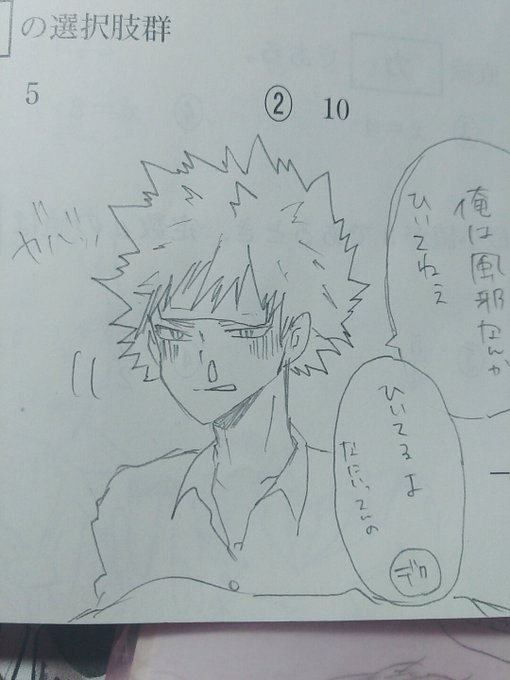 の選択肢群
5
② 10
俺は風邪なんか
ひいてねぇ
ひいてるよ
なにいってんの
デク